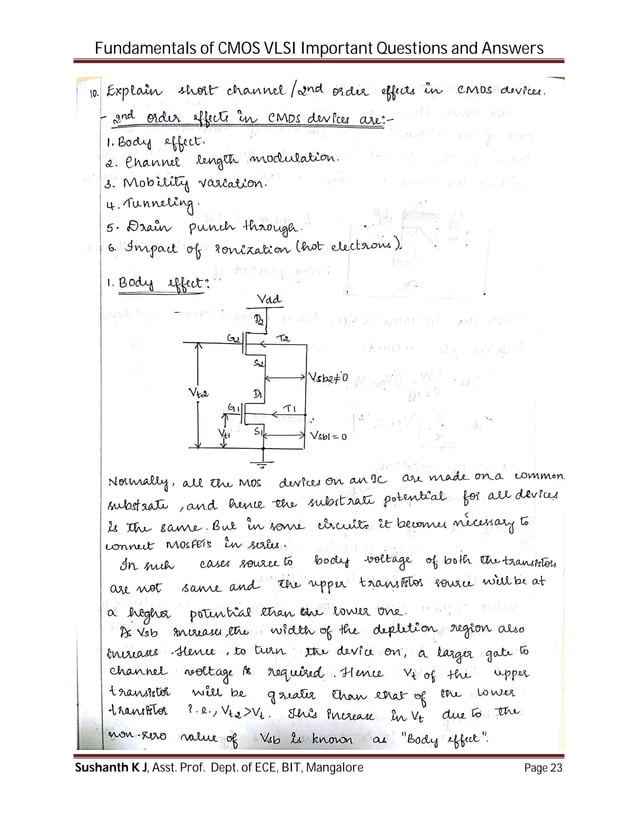 Fundamentals of CMOS VLSI Important Questions and Answers
10. Explain short channel/2nd order effects in CMOS devices.
- 2nd order effects in CMOS devices are:-
1. Body effect.
2. Channel length modulation.
3. Mobility variation.
4. Tunneling.
5. Drain punch through.
6. Impact of Ionization (hot electrons)
1. Body effect:
Vdd
D2
G2 T2
S2
Vsb2≠0
Vt2 D1
G1 T1
Vt1 S1 Vsb1=0
Normally, all the MOS devices on an IC are made on a common
substrate, and hence the substrate potential for all devices
is the same. But in some circuits it becomes necessary to
connect MOSFETs in series.
In such cases source to body voltage of both the transistors
are not same and the upper transistor source will be at
a higher potential than the lower one.
As Vsb increases, the width of the depletion region also
increase. Hence, to turn the device on, a larger gate to
channel voltage is required. Hence Vt of the upper
transistor will be greater than that of the lower
transistor i.e., Vt2>Vt. This increase in Vt due to the
non-zero value of Vsb is known as "Body effect".
Sushanth K J, Asst. Prof. Dept. of ECE, BIT, Mangalore Page 23